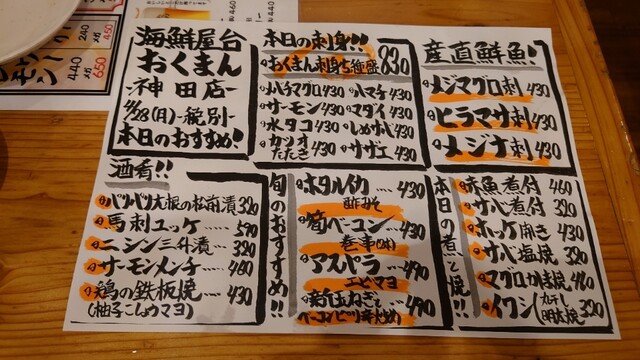 海鮮屋台
おくまん
-神田店-
4/28(月)-税別-
本日のおすすめ!
本日の刺身!!
おくまん刺身5種盛 830
ハチマグロ 430
ハマチ 430
サーモン 430
マダイ 430
水タコ 430
しめサバ 430
カツオたたき 430
サザエ 430
産直鮮魚!
メジマグロ刺 430
ヒラマサ刺 430
メジナ刺 430
酒肴!!
パリパリ大根の松前漬 320
馬刺ユッケ‥‥ 590
ニシン三升漬‥ 320
サーモンメンチ‥‥ 460
鶏の鉄板焼‥ 430
(柚子こしょうマヨ)
旬のおすすめ!!
ホタルイカ‥‥ 430
酢みそ
筍ベーコン‥ 430
巻串(2本)
アスパラ‥‥ 490
エビマヨ
新玉ねぎと 490
ベーコンピリ辛炒め
本日の煮と焼!!
赤魚煮付 460
サバ煮付 320
ホッケ開き 430
サバ塩焼 320
マグロカマ焼 460
イワシ(丸干し 明太焼 320
240
450
440
650
460